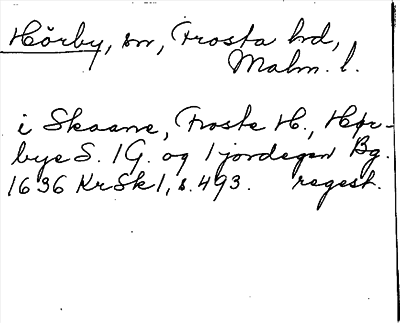 Hörby, sn, Frosta hd,
Malm. l.
i Skaane, Froste H., Hør-
bye S. 1 G. og 1 jordegen Bg.
1636 KrSk 1, s. 493. regest.